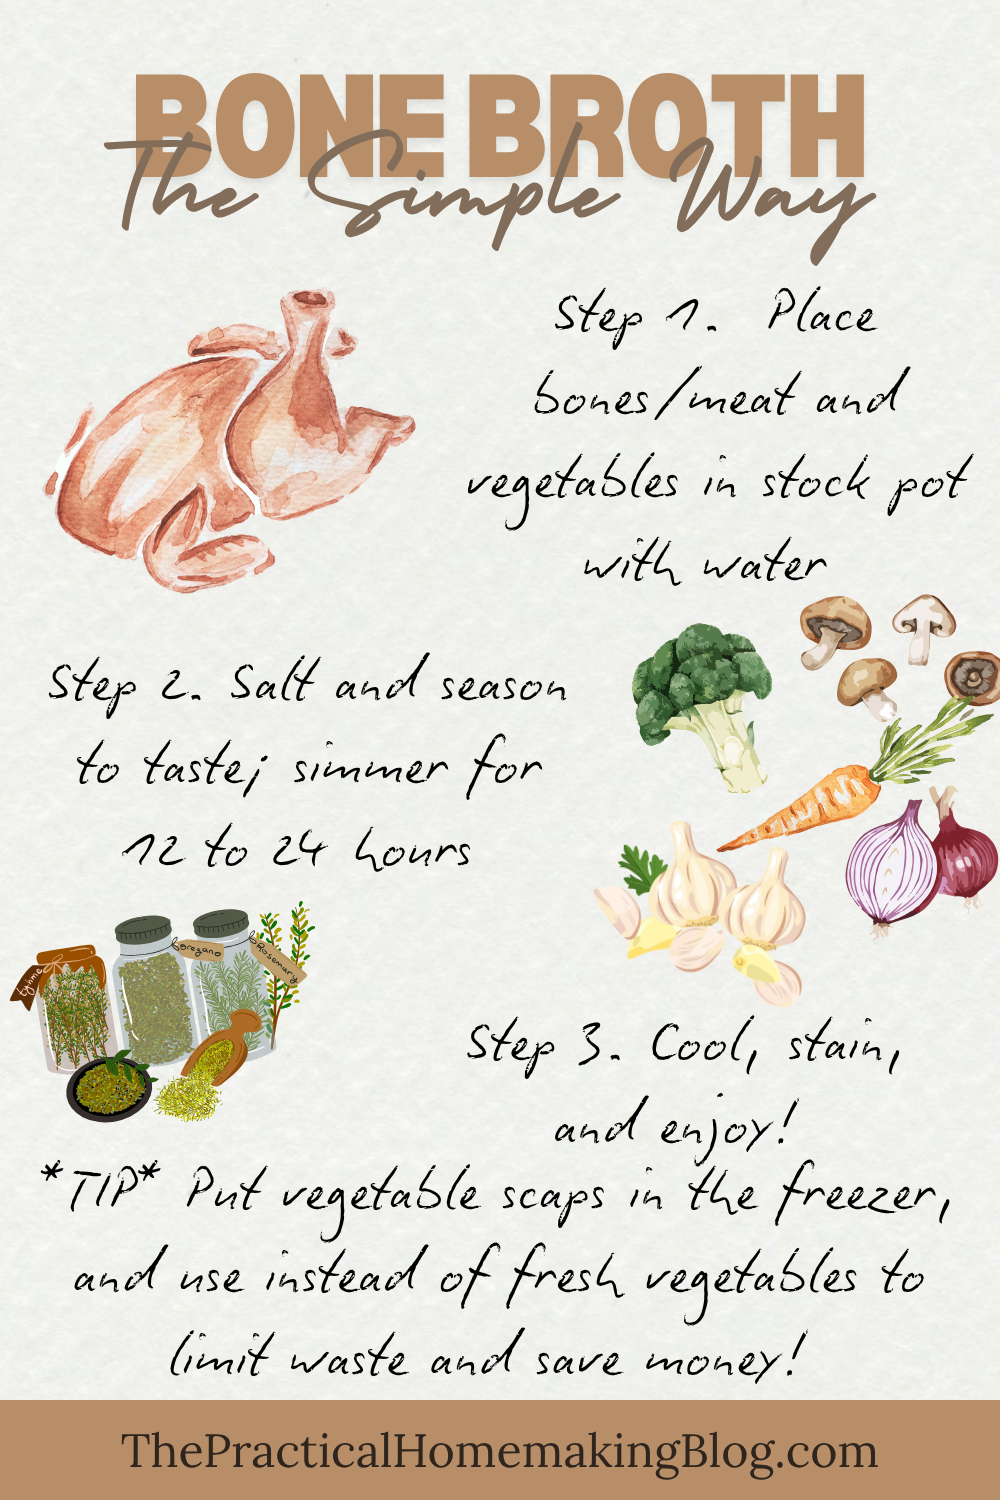 BONE BROTH
The Simple Way
Step 1. Place
bones/meat and
vegetables in stock pot
with water
Step 2. Salt and season
to taste; simmer for
12 to 24 hours
thyme
oregano
Rosemary
Step 3. Cool, stain,
and enjoy!
*TIP* Put vegetable scaps in the freezer,
and use instead of fresh vegetables to
limit waste and save money!
ThePracticalHomemakingBlog.com